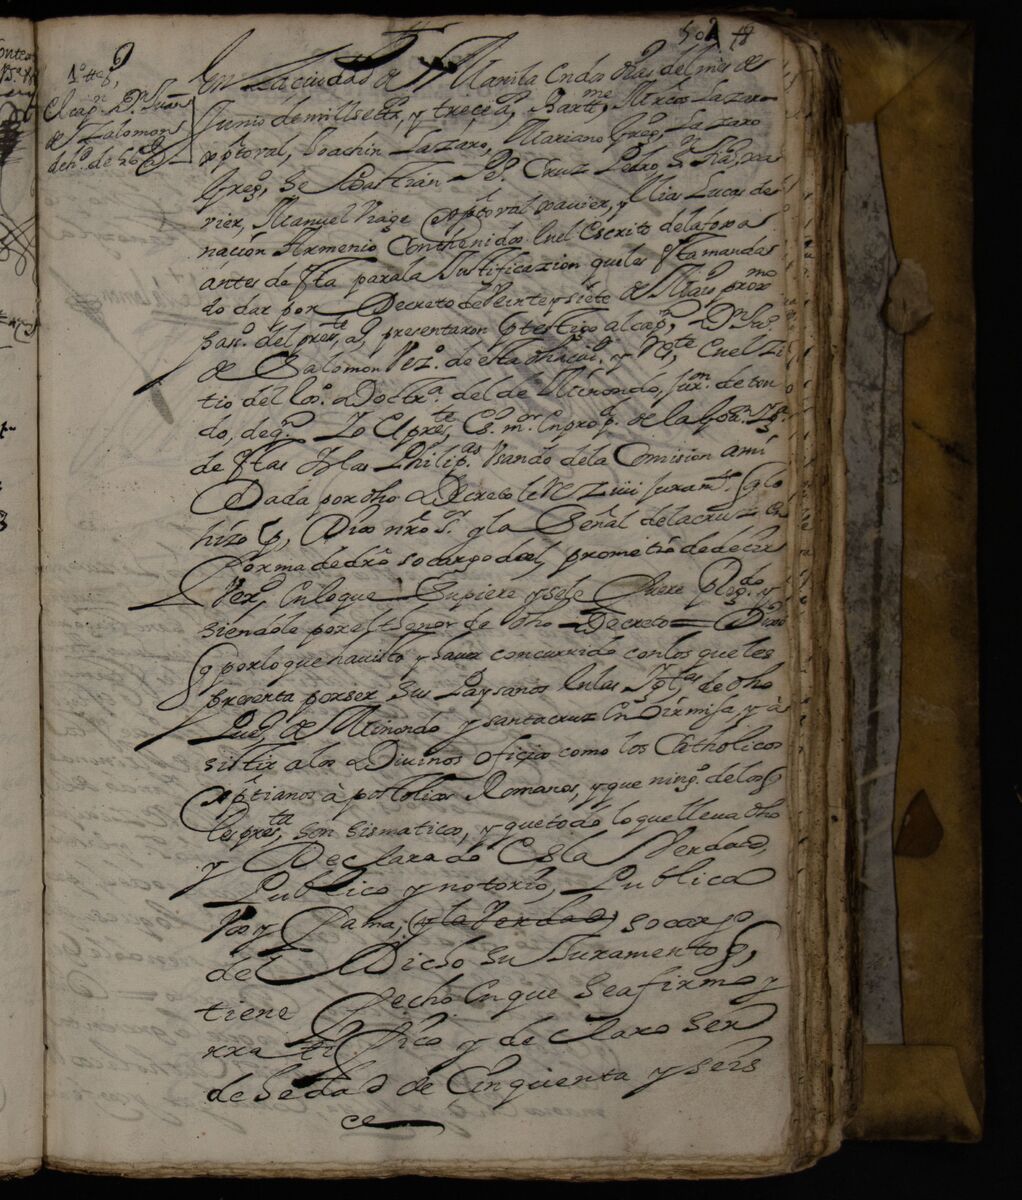 502
1º ttgº
El capⁿ Dⁿ Juan
de Zalomon
de hº de 56 aˢ
En La ciudad de Manila en dos dias del mes de
Junio de mill setˢ y treçe aˢ, Barttᵐᵉ, Marcos Lazaro
xptoval, Joachin Lazaro, Mariano Gregº, Lazaro
Gregº, Sebastian Pº Cruz Pedro Sⁿ
vier, Manuel xptoval xavier, y Elias Lucas de
nacion Armenio Conthenidos en el Escrito de la foxa
antes de esta para la Justificazion que les esta manda
do dar por Decreto de Veinte y siete de Maio proxᵐᵒ
passº. del presᵗᵉ aº, presentaron por testigo al capⁿ, Dⁿ Juº
de Salomon Vezº. de esta dha ciuᵈ, y Resᵗᵉ, en el zi
tio del Doctrª. del de Minondo,
do, de qº. Yo El presᵗᵉ, Esº. mºʳ En propº. de la Govºⁿ
de estas Yslas Philipªˢ. Usando de la Comision a mi
Dada por dho Decreto le Rezivi Juramᵗº. que lo
hizo por Dios nrô Sʳ. y la Señal de la cruz en
forma de drô so cargo del, prometio de decir
Verᵈ, en lo que Supiere y se le fuere Pregᵈᵒ y
siendole por el thenor de dho Decreto = Dixo
que por lo que ha visto y haver concurrido con los que les
presenta por ser sus Paysanos en las Yglᵃˢ, de dho
Pueº, de Minondo y santa cruz en oir misa, y a
sistir a los Divinos oficios como los Catholicos
xptianos apostolicos Romanos, y que ningº. de los q
les presᵗᵃ, son sismaticos, y que todo lo que lleva dho
y Declarado Es la Verdad,
Publico y notorio, Publica
Voz y Fama, (y la Verdad) so cargo
del Dicho su Juramento q,
tiene Fecho en que se afirmo y
rratifico y declaro ser
de hedad de Cinquenta y seis